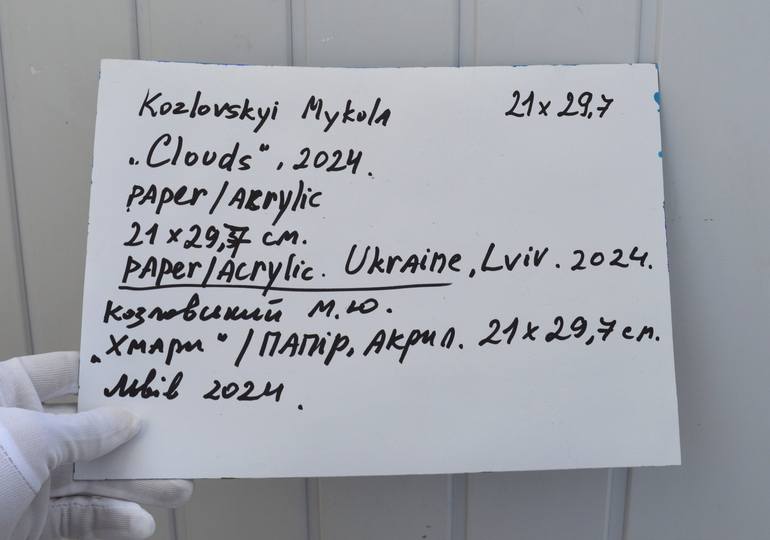 Kozlovskyi Mykola 21 x 29,7
„Clouds“, 2024.
PAper / Acrylic
21 x 29,7 см.
PAper/Acrylic. Ukraine, Lviv. 2024.
Козловський М.Ю.
„Хмари“ / Папір, Акрил. 21 x 29,7 см.
Львів 2024.